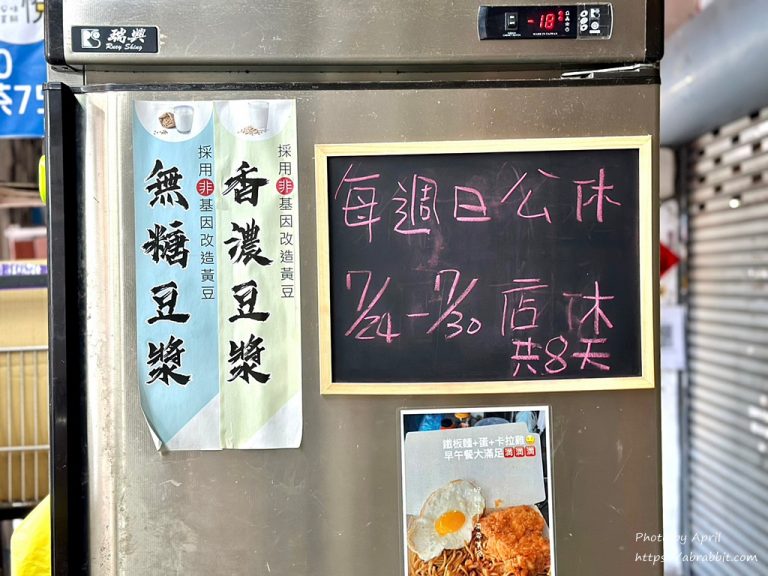 瑞興
Ruey Shing
-18
MADE IN TAIWAN
悅
茶75
採用非基因改造黃豆
香濃豆漿
採用非基因改造黃豆
無糖豆漿
每週日公休
7/24-7/30店休
共8天
鐵板麵+蛋+卡拉雞
早午餐大滿足滿滿滿
Photo by April
https://abrabbit.com